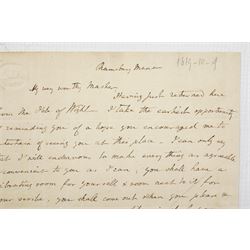 Ramsbury Manor
1819-10-9
My very worthy Master
Having just returned here
from the Isle of Wight. I take the earliest opportunity
reminding you of a hope you encouraged me to
entertain of seeing you at this place. I can only say
that I will endeavour to make every thing as agreeable
convenient to you as I can, you shall have a
sitting room for yourself & room next to it for
your servt, you shall come out when you please